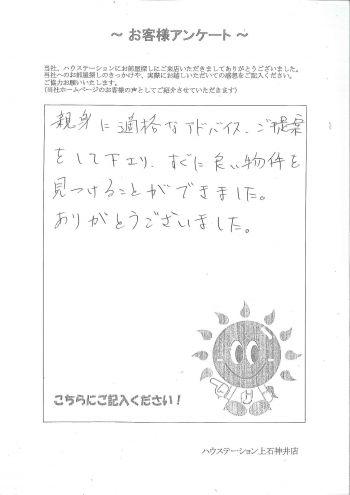 ～ お客様アンケート ～
当社、ハウステーションにお部屋探しにご来店いただきましてありがとうございました。
当社へのお部屋探しのきっかけや、実際にお越しいただいての感想をご記入ください。
ご協力お願いいたします。
(当社ホームページのお客様の声としてご紹介させていただきます)
親身に適格なアドバイス、ご提案
をして下エリ、すぐに良い物件を
見つけることができました。
ありがとうございました。
こちらにご記入ください！
ハウステーション上石神井店